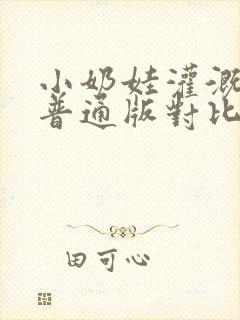 小奶娃灌溉
普通版對比
田可心